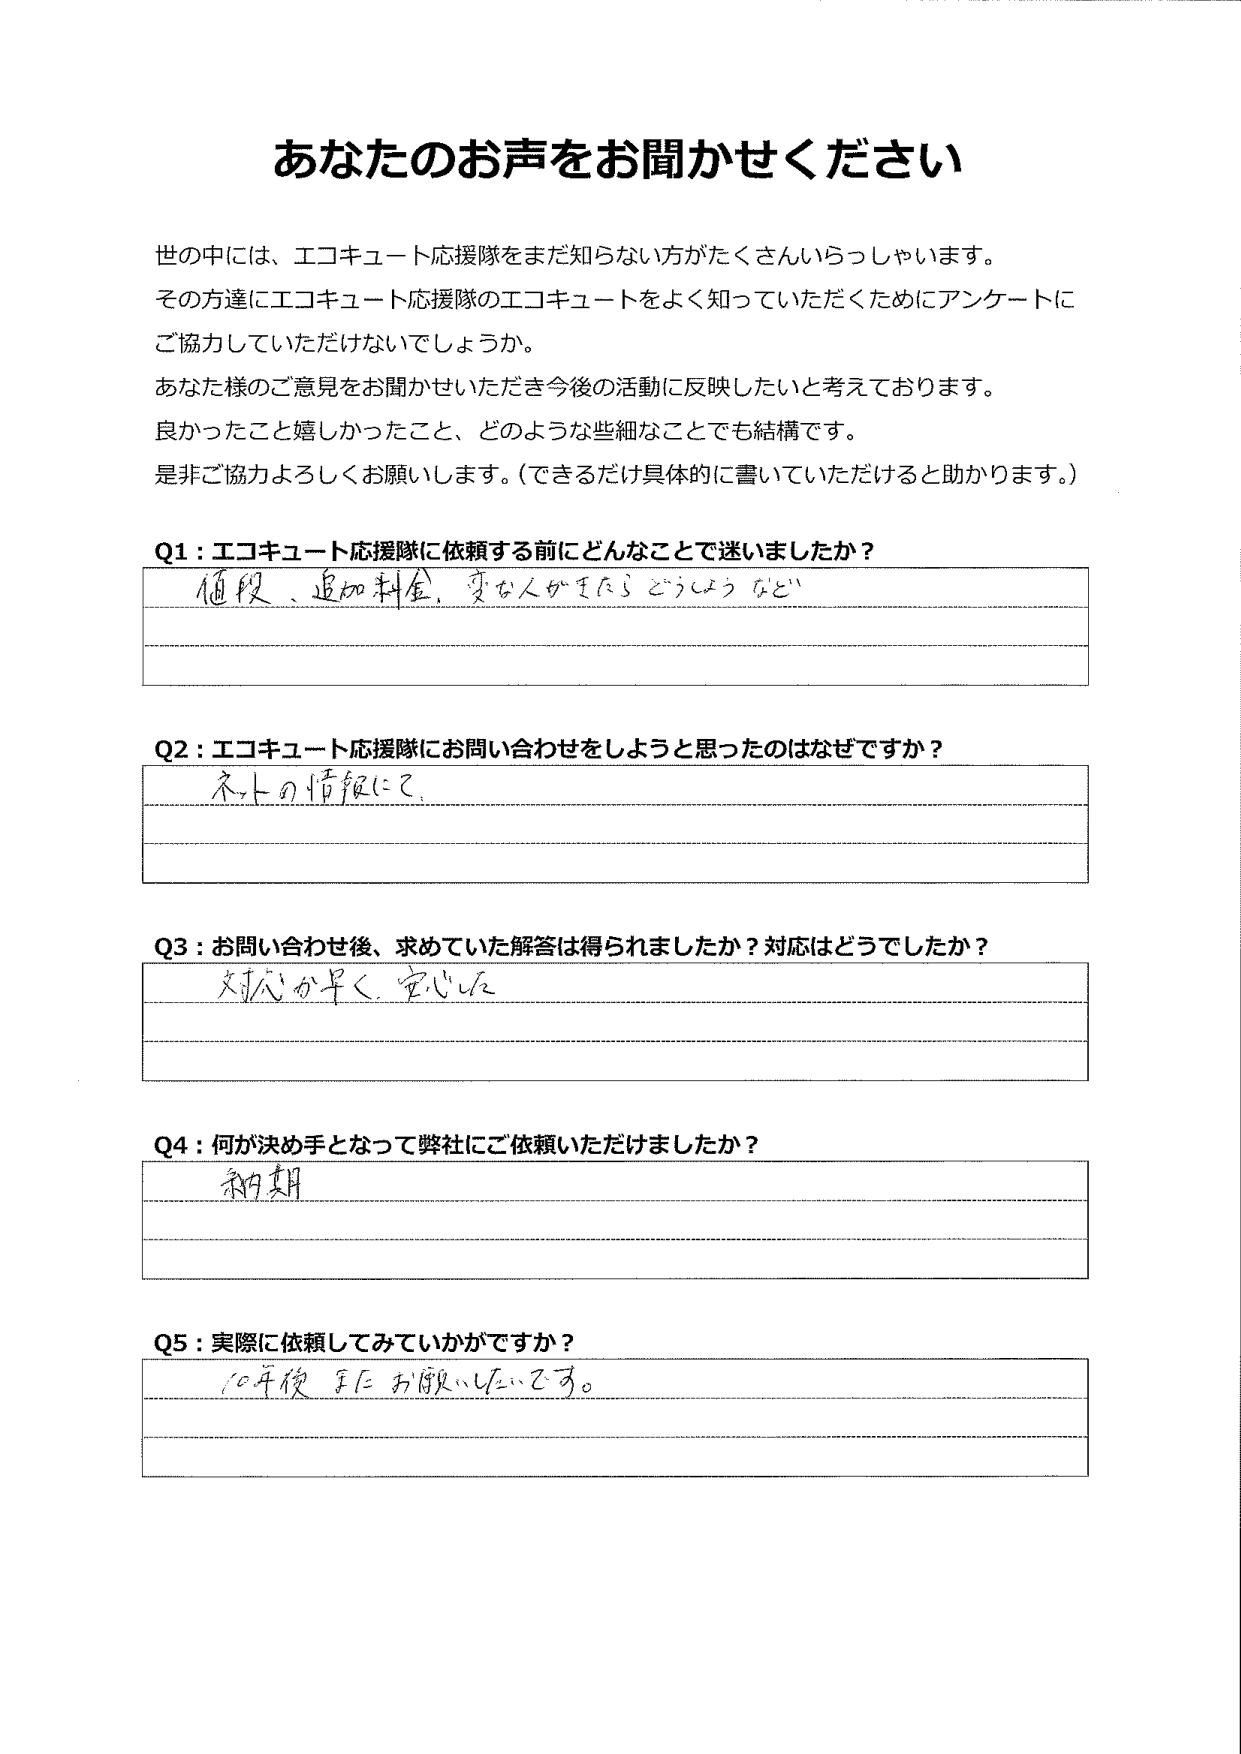 あなたのお声をお聞かせください
世の中には、エコキュート応援隊をまだ知らない方がたくさんいらっしゃいます。
その方達にエコキュート応援隊のエコキュートをよく知っていただくためにアンケートに
ご協力していただけないでしょうか。
あなた様のご意見をお聞かせいただき今後の活動に反映したいと考えております。
良かったこと嬉しかったこと、どのような些細なことでも結構です。
是非ご協力よろしくお願いします。（できるだけ具体的に書いていただけると助かります。）
Q1：エコキュート応援隊に依頼する前にどんなことで迷いましたか？
値段、追加料金、変な人がきたらどうしようなど
Q2：エコキュート応援隊にお問い合わせをしようと思ったのはなぜですか？
ネットの情報にて、
Q3：お問い合わせ後、求めていた解答は得られましたか？対応はどうでしたか？
対応が早く、安心した
Q4：何が決め手となって弊社にご依頼いただけましたか？
納期
Q5：実際に依頼してみていかがですか？
10年後またお願いしたいです。